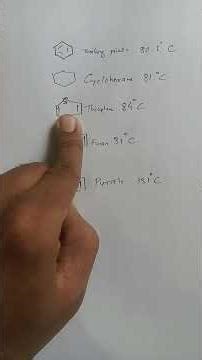 Boiling point 80.1°C
Cyclohexane 81°C
S Thiophene 84°C
Furan 31°C
Pyrrole 131°C